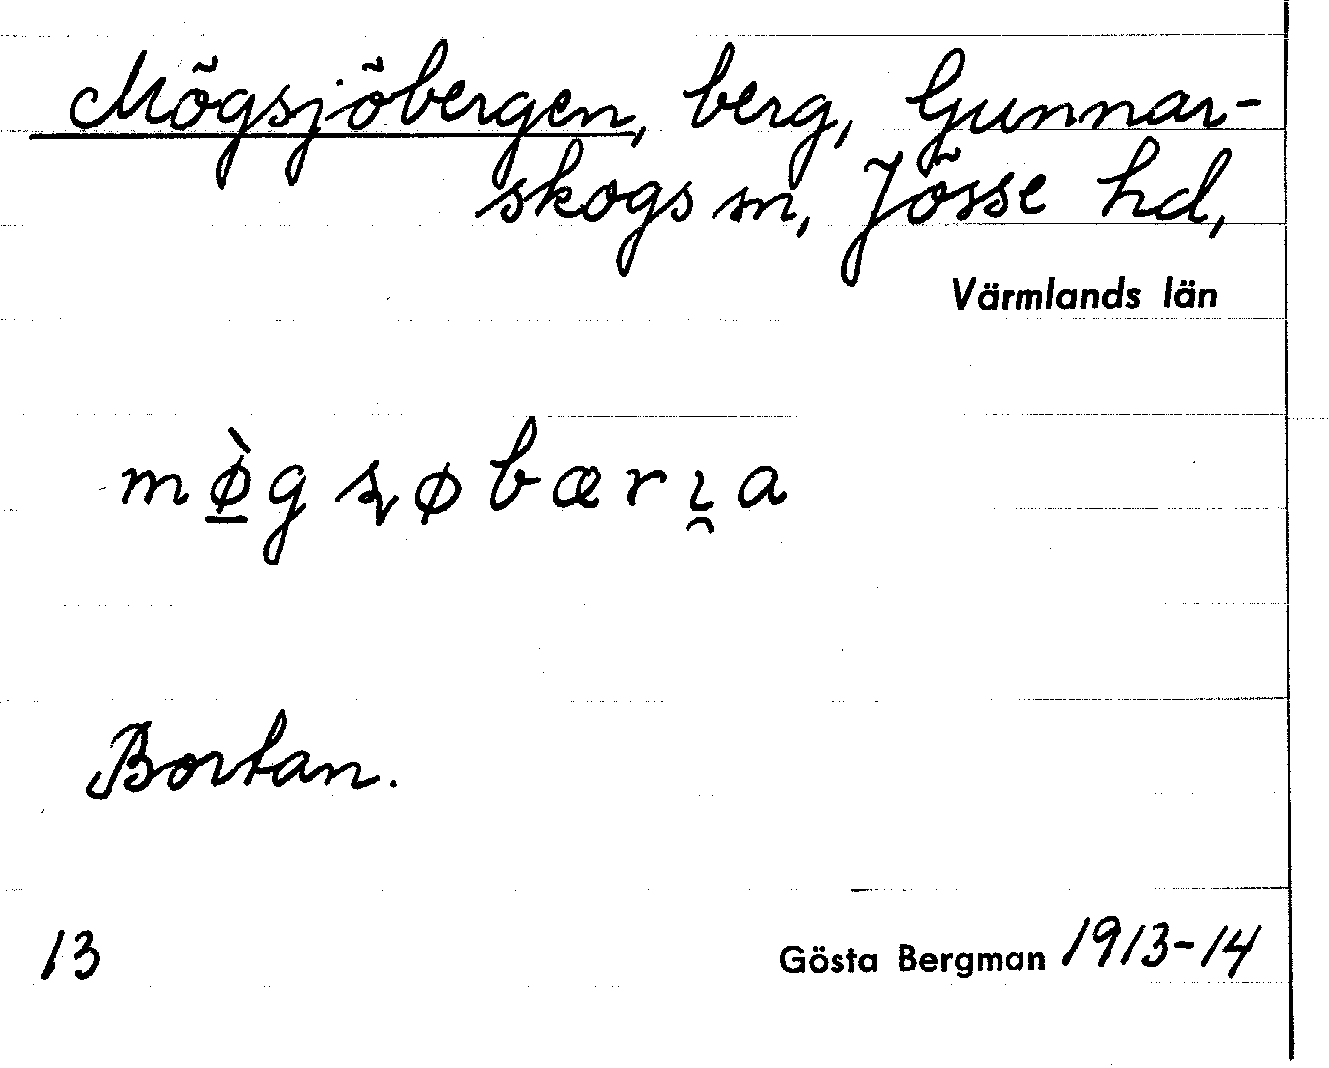 Mögsjöbergen, berg, Gunnar-
skogs sn, Jösse hd,
Värmlands län
Bortan.
13
Gösta Bergman 1913-14